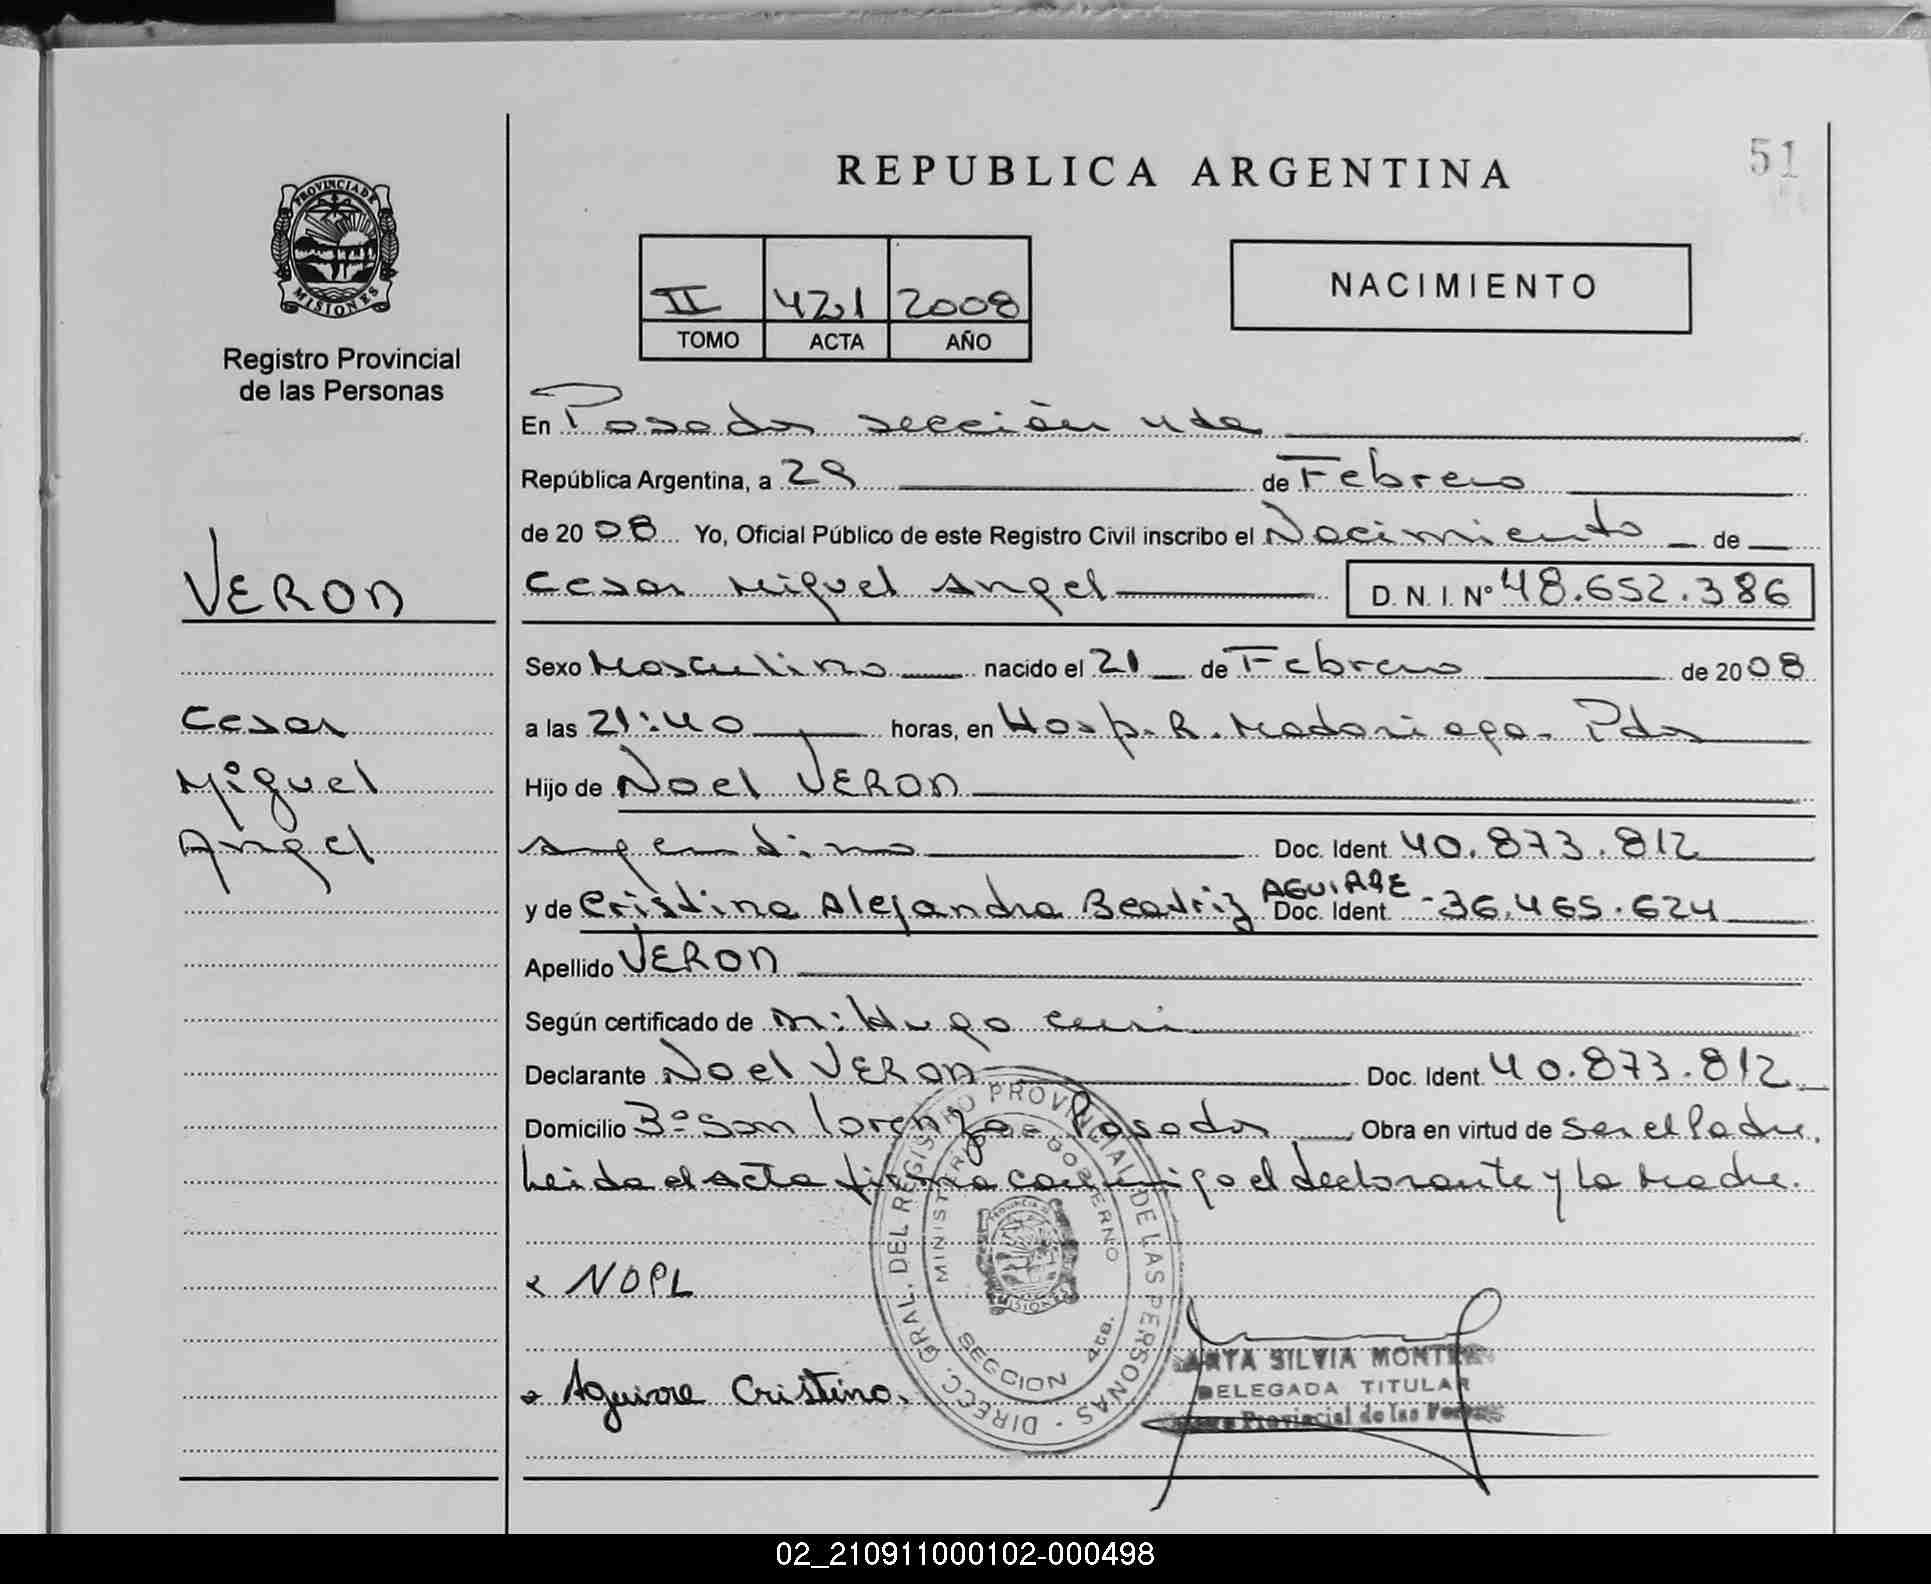 51
REPUBLICA ARGENTINA
PROVINCIA DE
MISIONES
Registro Provincial
de las Personas
II 421 2008
TOMO ACTA AÑO
NACIMIENTO
En Posadas sección 4ta
República Argentina, a 29 de Febrero
de 2008 Yo, Oficial Público de este Registro Civil inscribo el Nacimiento de
VERON
Cesar Miguel Angel D. N. I. Nº 48.652.386
Sexo Masculino nacido el 21 de Febrero de 2008
Cesar
a las 21:40 horas, en Hosp. R. Madariaga - Pdas
Miguel
Hijo de Noel VERON
Angel
argentino Doc. Ident. 40.873.812
y de Cristina Alejandra Beatriz AGUIRRE Doc. Ident. -36.465.624
Apellido VERON
Según certificado de Hugo
Declarante Noel VERON Doc. Ident. 40.873.812
Domicilio Bº San Lorenzo - Posadas Obra en virtud de ser el Padre.
Leida el acta firma conmigo el declarante y la Madre.
DIRECC. GRAL. DEL REGISTRO PROVINCIAL DE LAS PERSONAS
MINISTERIO DE GOBIERNO
PROVINCIA DE
MISIONES
SECCION 4ta.
NOEL
Aguirre Cristina.
SILVIA
DELEGADA TITULAR
Provincial de las
02_210911000102-000498